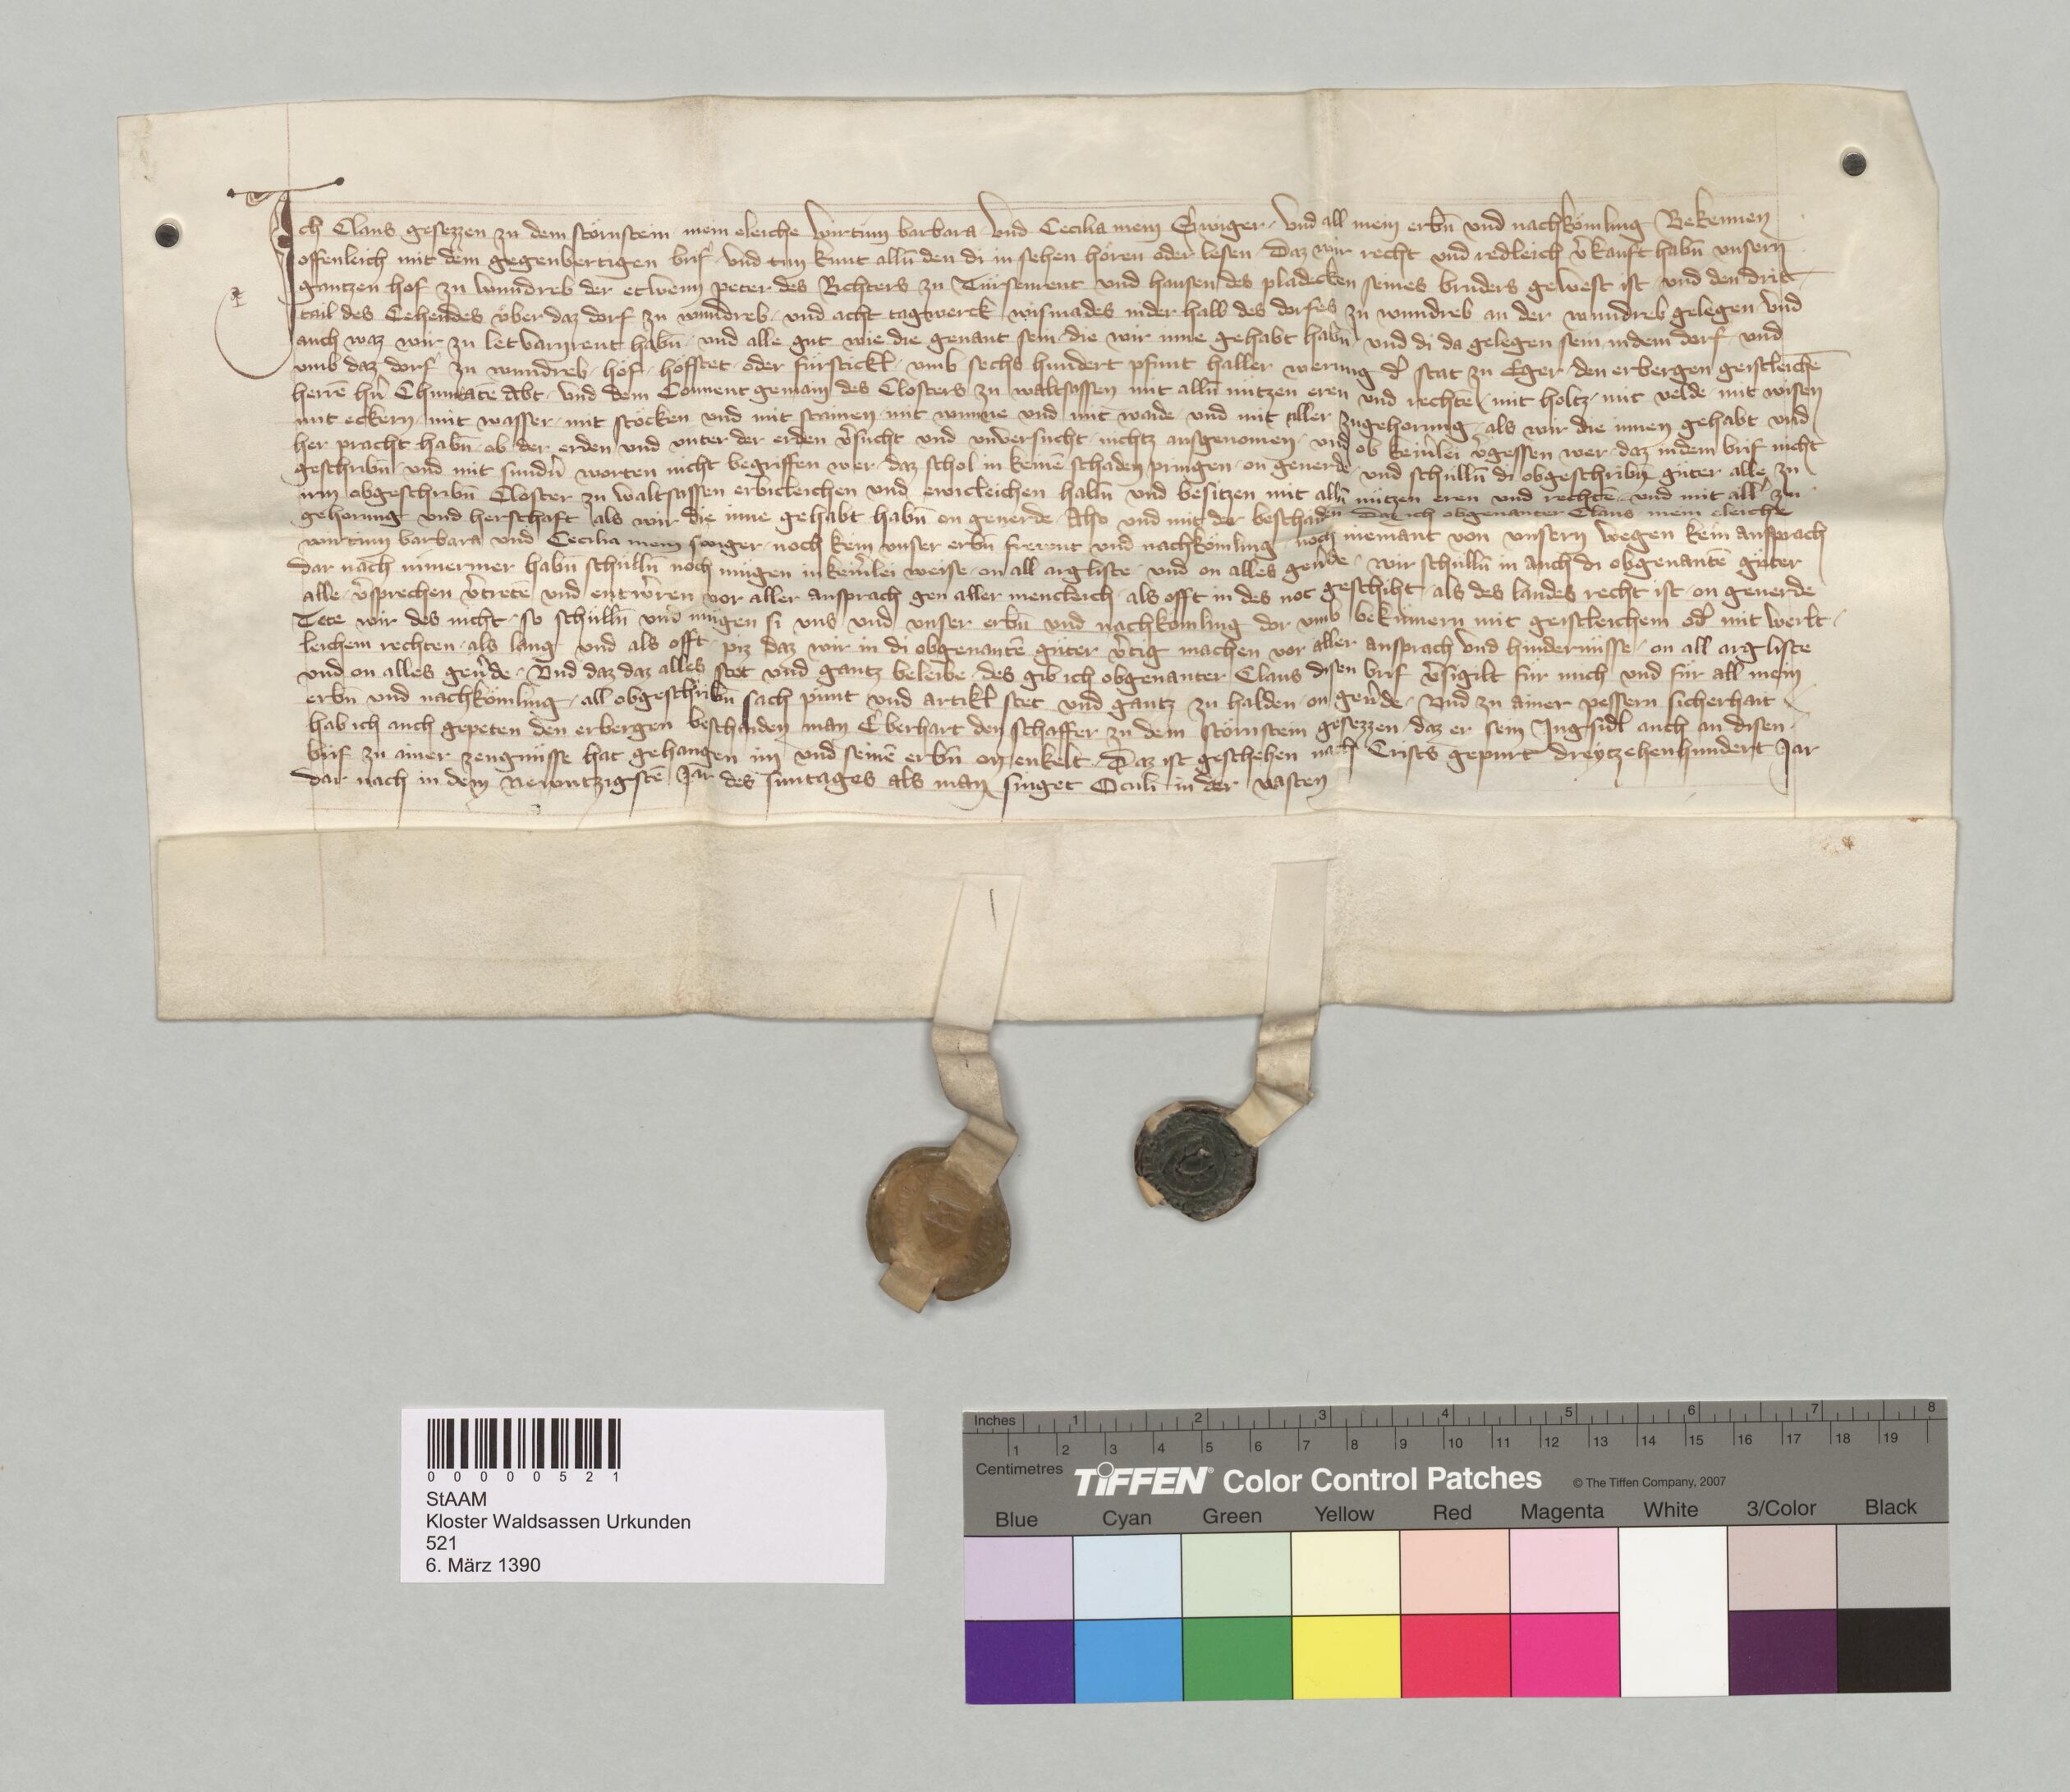 Ich Clans gesezzen zu dem störnstein mein eleiche wirtinn barbara und Cecilia mein Swiger und all mein erbn̄ und nachkömling Bekennen
offenleich mit dem gegenbertigen brif und tun kunt alln̄ den di in sehen hören oder lesen Daz wir recht und redleich v̾kauft habn̄ unsern
gantzen hof zu wundreb der etwenn peter des Richters zu Türsenrent und hansen des pladecken seines bruders gewest ist und den drit
tail des Cehendes vber daz dorf zu wundreb und acht tagwerck wismades niderhalb des dorfes zu wundreb an der wundreb gelegen und
auch waz wir zu habn̄ und alle gut wie die genant sein die wir inne gehabt habn̄ und di da gelegen sein indem dorf und
umb daz dorf zu wundreb höf höfstet oder fürstickl umb sechs hundert pfunt haller werung d̾ stat zu Eger den erbergen geistleichē
herrē hn̄ Chunratē Abt und dem Conuent gemain des Closters zu waltsassen mit alln̄ nützen eren und rechtē mit holtz mit velde mit wisen
mit eckern mit wasser mit stöcken und mit stainen mit wunne und mit waide und mit aller zugehorung als wir die innen gehabt und
her pracht habn̄ ob der erden und unter der erden v̾sucht und unversucht nichtz ausgenomen und ob keinlei v̾gessen wer daz indem brif nicht
geschribn̄ und mit sundn̄ worten nicht begriffen wer daz schol in keinē schaden pringen on geuerde und schülln̄ di obgeschribn̄ güter alle zu
irm obgeschribn̄ Closter zu waltsassen erbicleichen und ewicleichen habn̄ und besitzen mit alln̄ nützen eren und rechtē und mit all̾ zu
gehorung und herschaft als wir die inne gehabt habn̄ on geuerde Also und mit der beschaiden daz ich obgenanter Clans mein eleiche
wirtinn barbara und Cecilia mein swiger noch kein unser erbn̄ freunt und nachkömling noch niemant von unsern wegen kein ansprach
dar nach nimermer habn̄ schülln̄ noch mügen in keinlei weise on all argliste und on alles gev̾de wir schülln̄ in auch di obgenantē güter
alle v̾sprechen v̾tretē und entwern vor aller ansprach gen aller mencleich als offt in des not geschiht als des landes recht ist on geuerde
Tete wir des nicht so schülln̄ und mügen si uns und unser erbn̄ und nachkömling dor umb bekümern mit geistleichem od̾ mit werlt
leichem rechten als lang und als offt piz daz wir in di obgenantē güter v̾tig machen vor aller ansprach und hindernüsse on all argliste
und on alles gev̾de Und daz daz alles stet und gantz beleibe des gib ich obgenanter Clans disen brif v̾sigilt für mich und für all mein
erbn̄ und nachkömling all obgeschribn̄ sach punt und artikl stet und gantz zu halden on gev̾de Und zu ainer pessern sicherhait
hab ich auch gepeten den erbergen beschaiden man Eberhart den schaffer zu dem störnstein gesezzen daz er sein Jnsigl auch an disen
brif zu ainer zeugnüsse hat gehangen im und seinē erbn̄ on enkelt Daz ist geschehen nach Crists gepurt dreytzehenhundert Jar
dar nach in dem Neuntzigstē Jar des suntages als man singet Oculi in der vasten
0 0 0 0 0 5 2 1
StAAM
Kloster Waldsassen Urkunden
521
6. März 1390
Inches 1 2 3 4 5 6 7 8
1 2 3 4 5 6 7 8 9 10 11 12 13 14 15 16 17 18 19
Centimetres
TIFFEN® Color Control Patches © The Tiffen Company, 2007
Blue Cyan Green Yellow Red Magenta White 3/Color Black